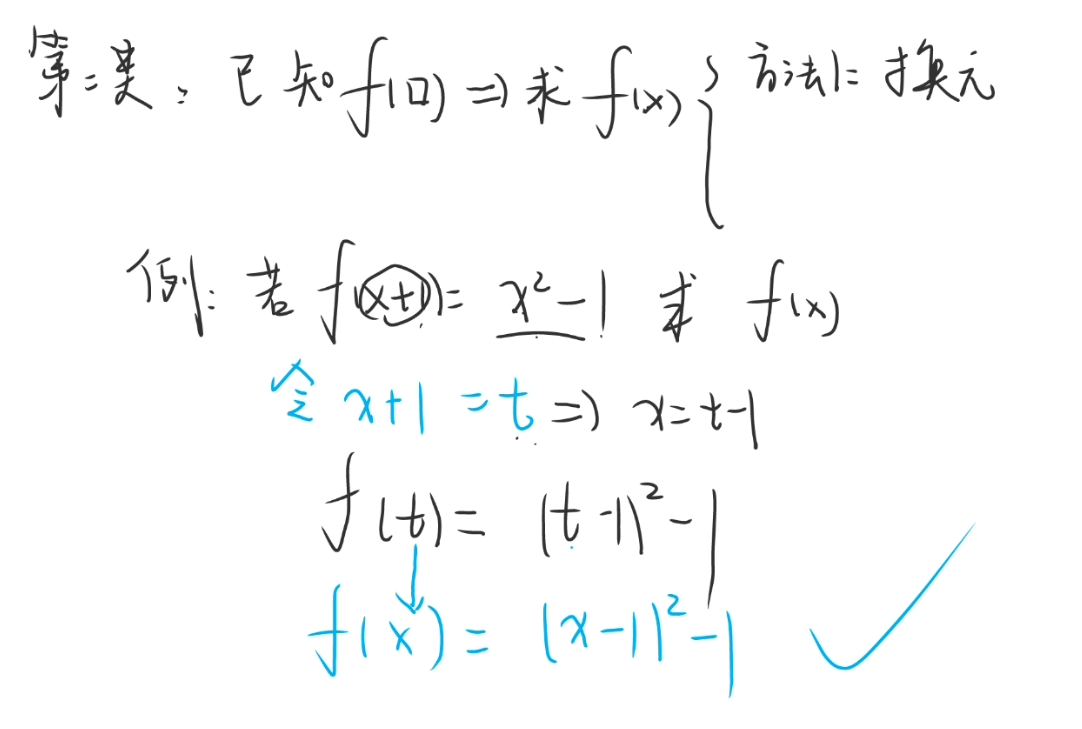 第二类：已知f(口)⇒求f(x){方法1：换元
例：若f(x+1)=x²-1 求 f(x)
令 x+1=t⇒x=t-1
f(t)=(t-1)²-1
f(x)=(x-1)²-1